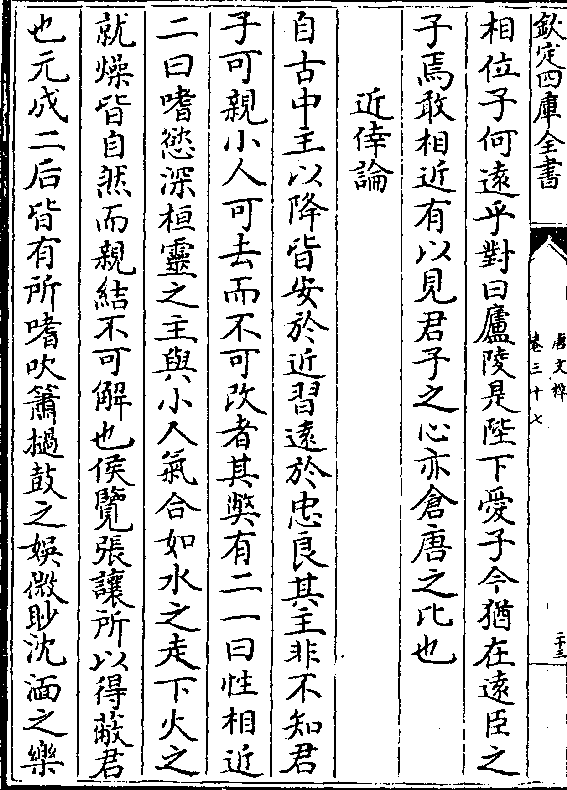 欽定四庫全書
唐文粹
卷三十七
二十三
相位子何遠乎對曰廬陵是陛下愛子今猶在遠臣之
子焉敢相近有以見君子之心亦倉唐之比也
近倖論
自古中主以降皆安於近習遠於忠良其主非不知君
子可親小人可去而不可改者其弊有二一曰性相近
二曰嗜慾深桓靈之主與小人氣合如水之走下火之
就燥皆自然而親結不可解也侯覽張讓所以得蔽君
也元成二后皆有所嗜吹簫撾鼓之娛微眇沈湎之樂